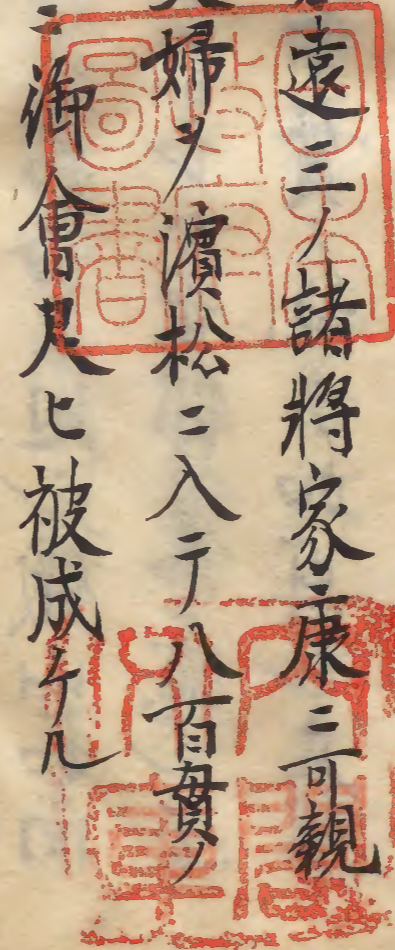 遠三ノ諸將家康ニ可親
婦ヲ濱松ニ入テ八百貫ノ
ニ御會尺ヒ被成ケル